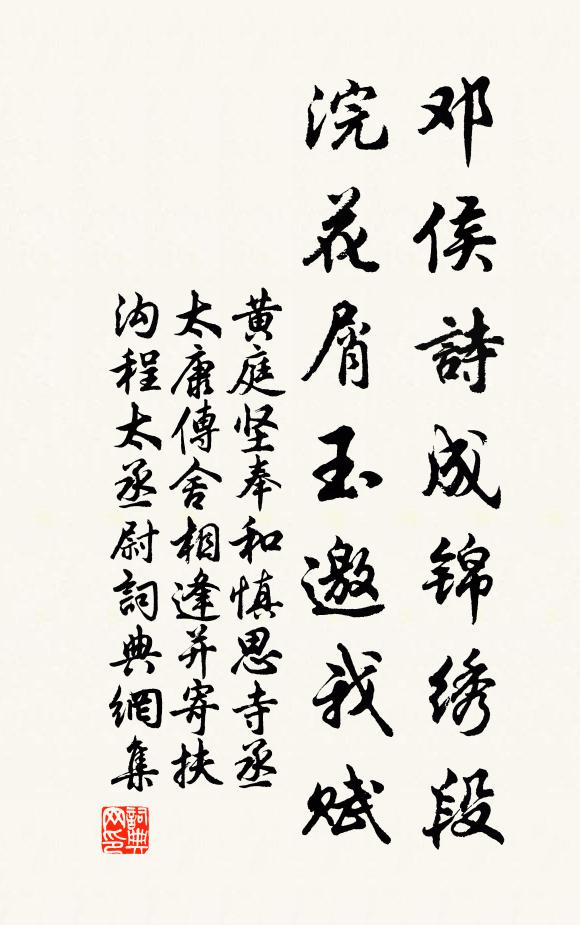 邓侯詩成锦绣段
浣花屑玉邀我赋
黄庭坚奉和慎思寺丞
太康傅舍相逢并寄扶
沟程太丞尉詞典網集
詞典
网印